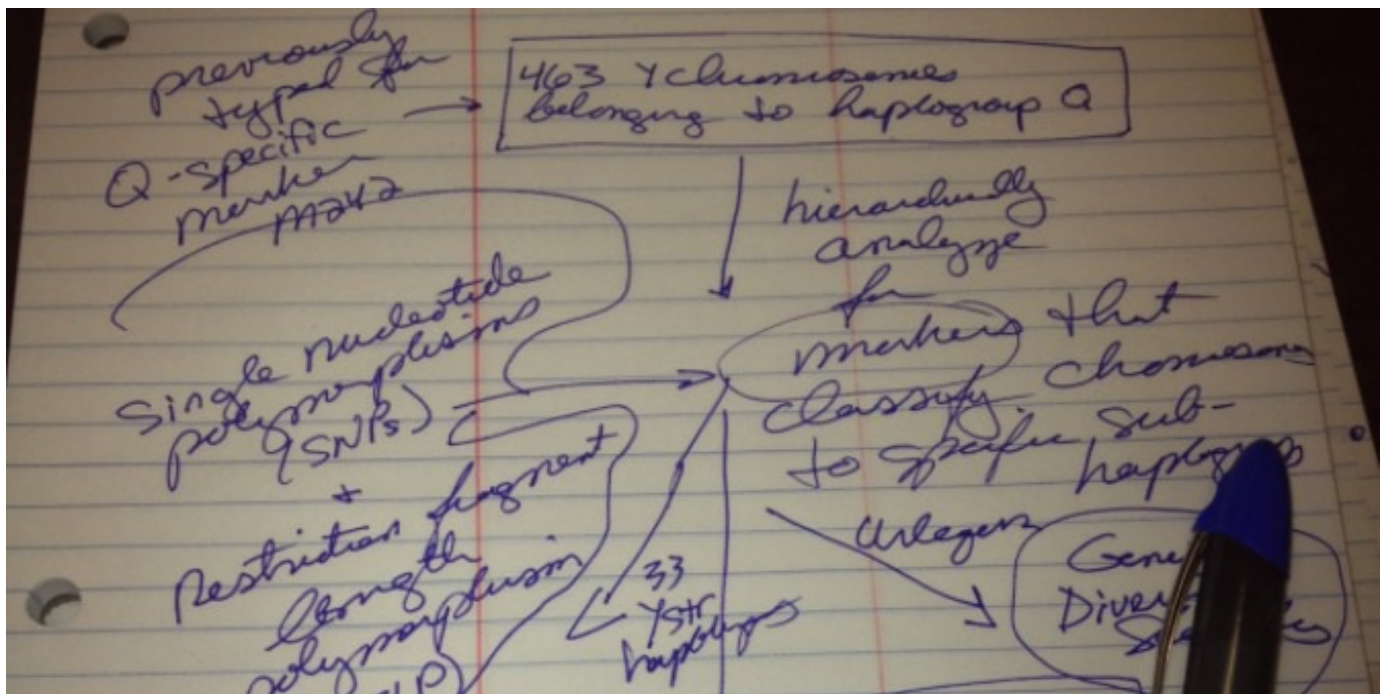 previously
typed for
Q-specific
marker
M242
463 Y chromosomes
belonging to haplogroup Q
hierarchically
analyze
for
markers that
classify chomosomes
to specific sub-
Single nucleotide
polymorphisms
(SNPs)
+
Restriction fragment
length
polymorphism
33
Ystr
haplotypes